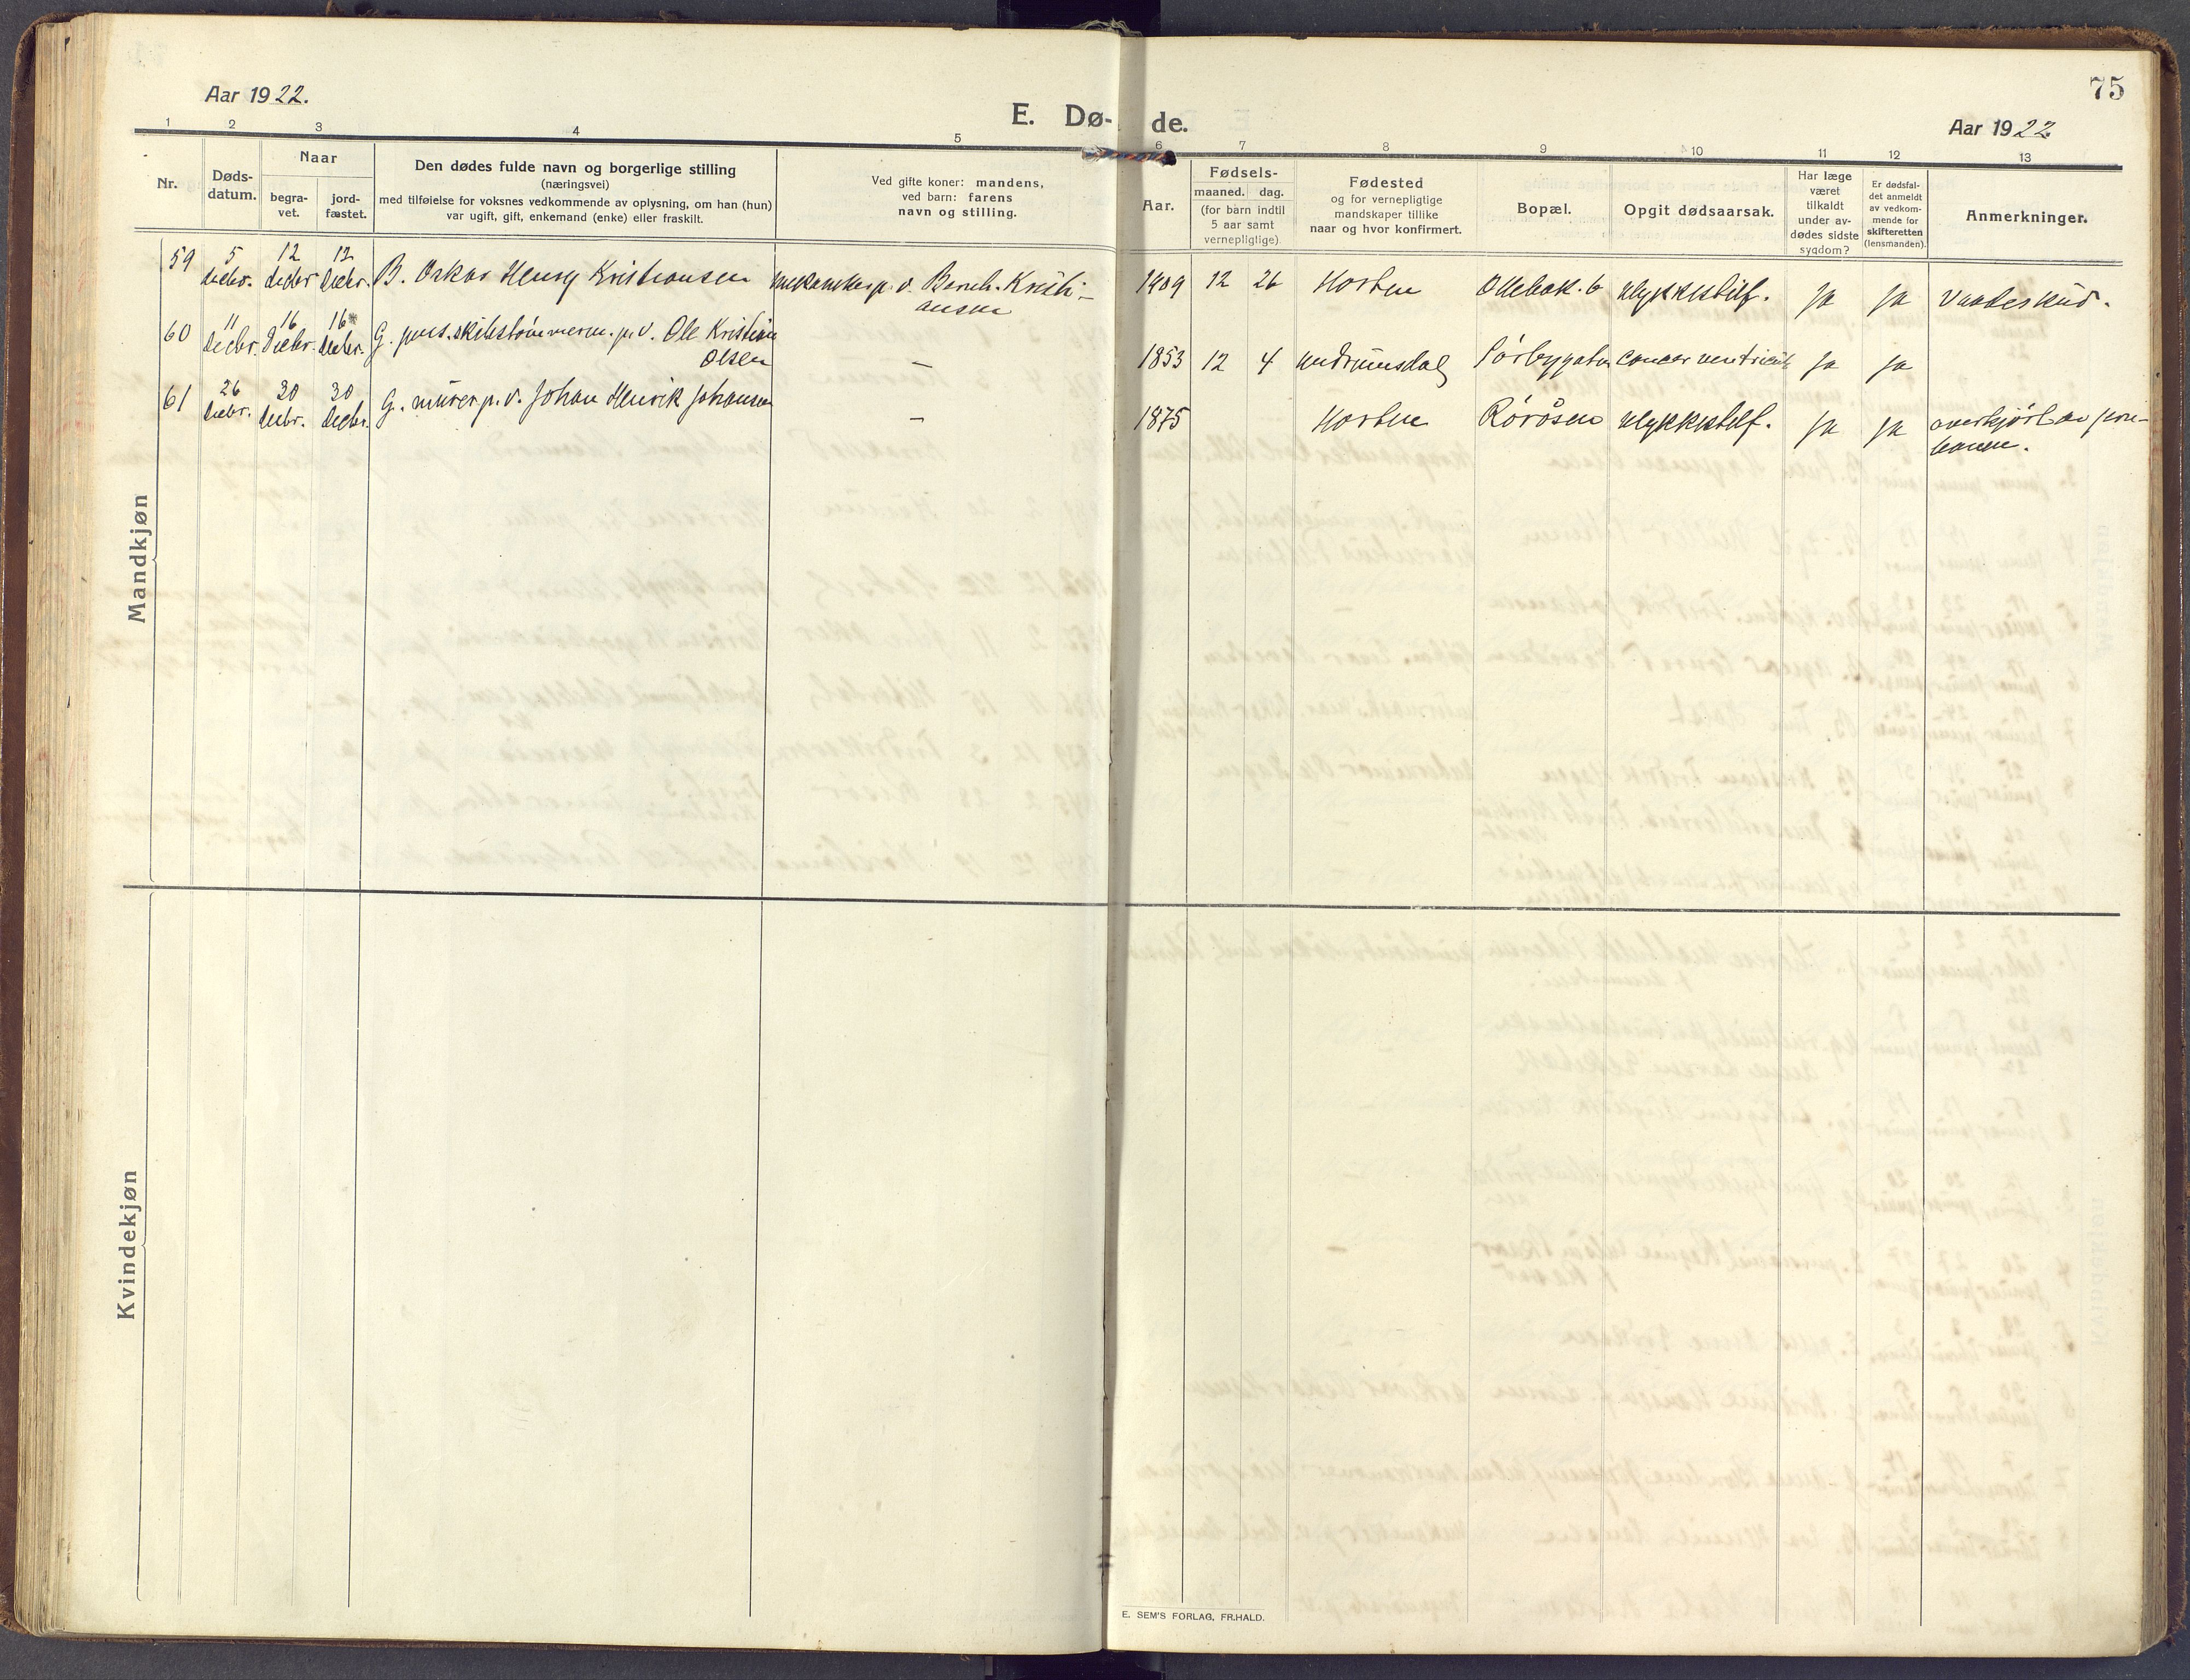 75
Aar 1922.
E. Dø-de.
Aar 1922.
1 2 3 4 5 6 7 8 9 10 11 12 13
Nr.
Døds-
datum.
Naar
begra-
vet.
jord-
fæstet.
Den dødes fulde navn og borgerlige stilling
(næringsvei)
med tilføielse for voksnes vedkommende av oplysning, om han (hun)
var ugift, gift, enkemand (enke) eller fraskilt.
Ved gifte koner: mandens,
ved barn: farens
navn og stilling.
Aar.
Fødsels-
maaned. dag.
(for barn indtil
5 aar samt
vernepligtige)
Fødested
og for vernepligtige
mandskaper tillike
naar og hvor konfirmert.
Bopæl.
Opgit dødsaarsak.
Har læge
været
tilkaldt
under av-
dødes sidste
sygdom?
Er dødsfal-
det anmeldt
av vedkom-
mende for
skifteretten
(lensmanden).
Anmerkninger.
Mandkjøn
59 5 decbr. 12 decbr 12 decbr. B. Oskar Henry Kristiansen mekaniker p. v. Bernh. Kristi-
ansen
1909 12 26 Horten Ollebak. 6 ulykkestilf. ja ja Vaadeskud.
60 11 decbr. 16 decbr. 16 decbr. G. pens. skibstømmerm. p. v. Ole Kristian
Olsen
— 1853 12 4 Undrumsdal Sørbygaten cancer ventriculi ja ja
61 26 decbr. 30 decbr. 30 decbr. G. murer p. v. Johan Henrik Johansen
— 1875 Horten Rørøsen ulykkestilf. ja ja overkjørt av jern-
banen.
Kvindekjøn
E. SEM'S FORLAG, FR.HALD.